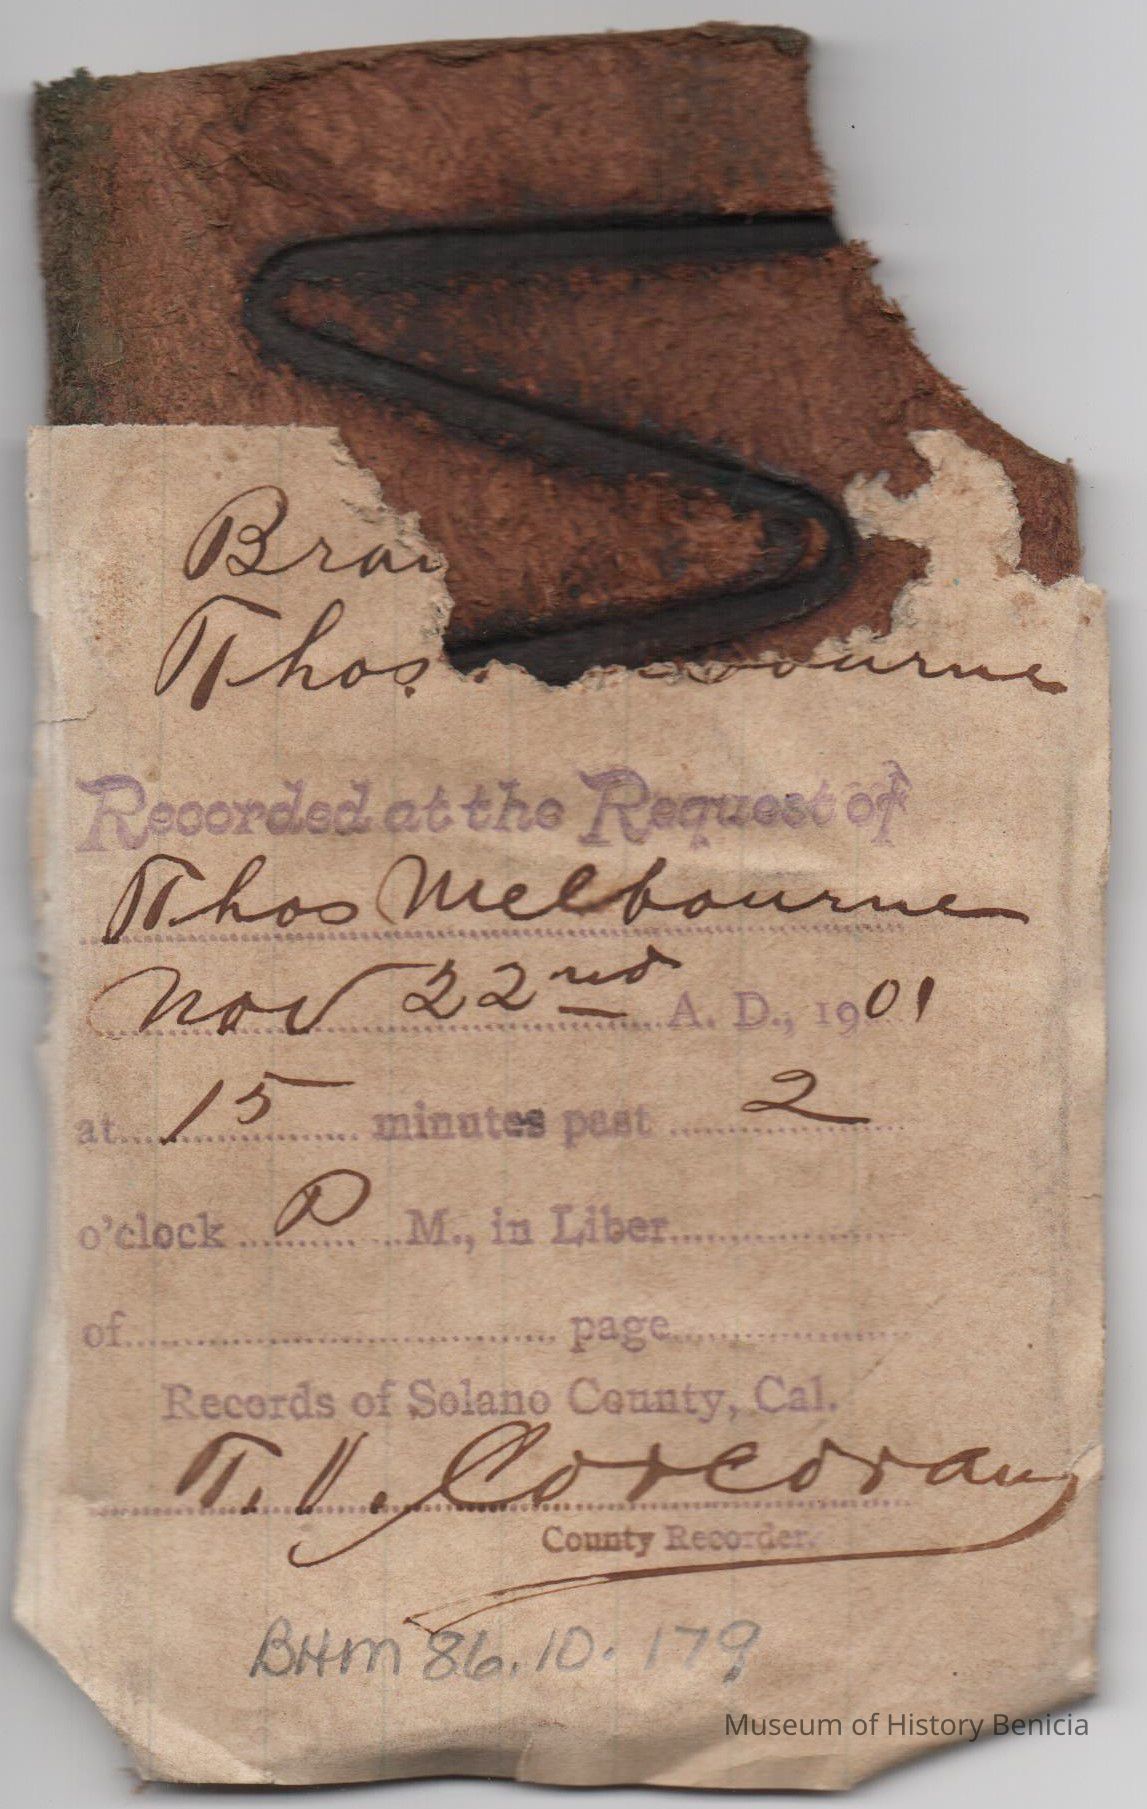 Thos.
Recorded at the Request of
Thos Melbourne
Nov 22nd A. D., 1901
at 15 minutes past 2
o'clock P M., in Liber
of page
Records of Solano County, Cal.
T. V. Corcoran
County Recorder.
BHM 86.10.179
Museum of History Benicia